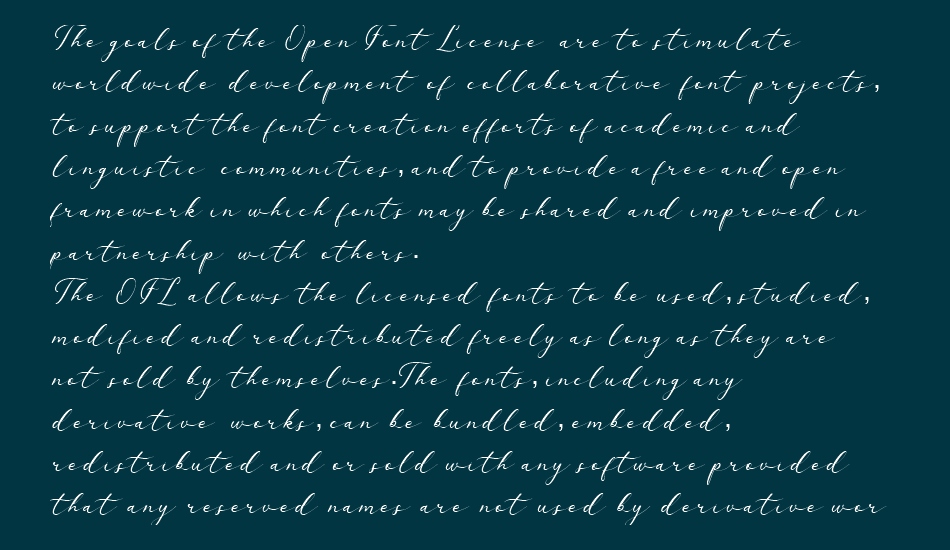 The goals of the Open Font License are to stimulate
worldwide development of collaborative font projects,
to support the font creation efforts of academic and
linguistic communities, and to provide a free and open
framework in which fonts may be shared and improved in
partnership with others.
The OFL allows the licensed fonts to be used, studied,
modified and redistributed freely as long as they are
not sold by themselves. The fonts, including any
derivative works, can be bundled, embedded,
redistributed and or sold with any software provided
that any reserved names are not used by derivative wor